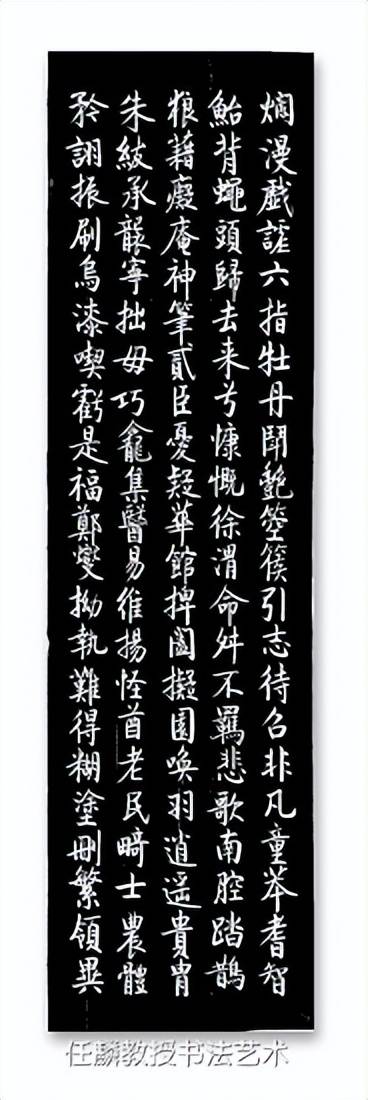 爛漫戲謔六指牡丹鬭艷箜篌引志待召非凡童耆智
鮐背蠅頭歸去来兮慷慨徐渭命舛不羈悲歌南腔踏鵲
狼藉癡庵神筆貳臣憂疑華館捭闔擬園喚羽逍遥貴胄
朱紱承襲寧拙毋巧龕集醫易維揚怪酋老民畸士農體
矜詡振刷烏漆喫虧是福鄭燮拗執難得糊塗刪繁領異
任麟教授书法艺术